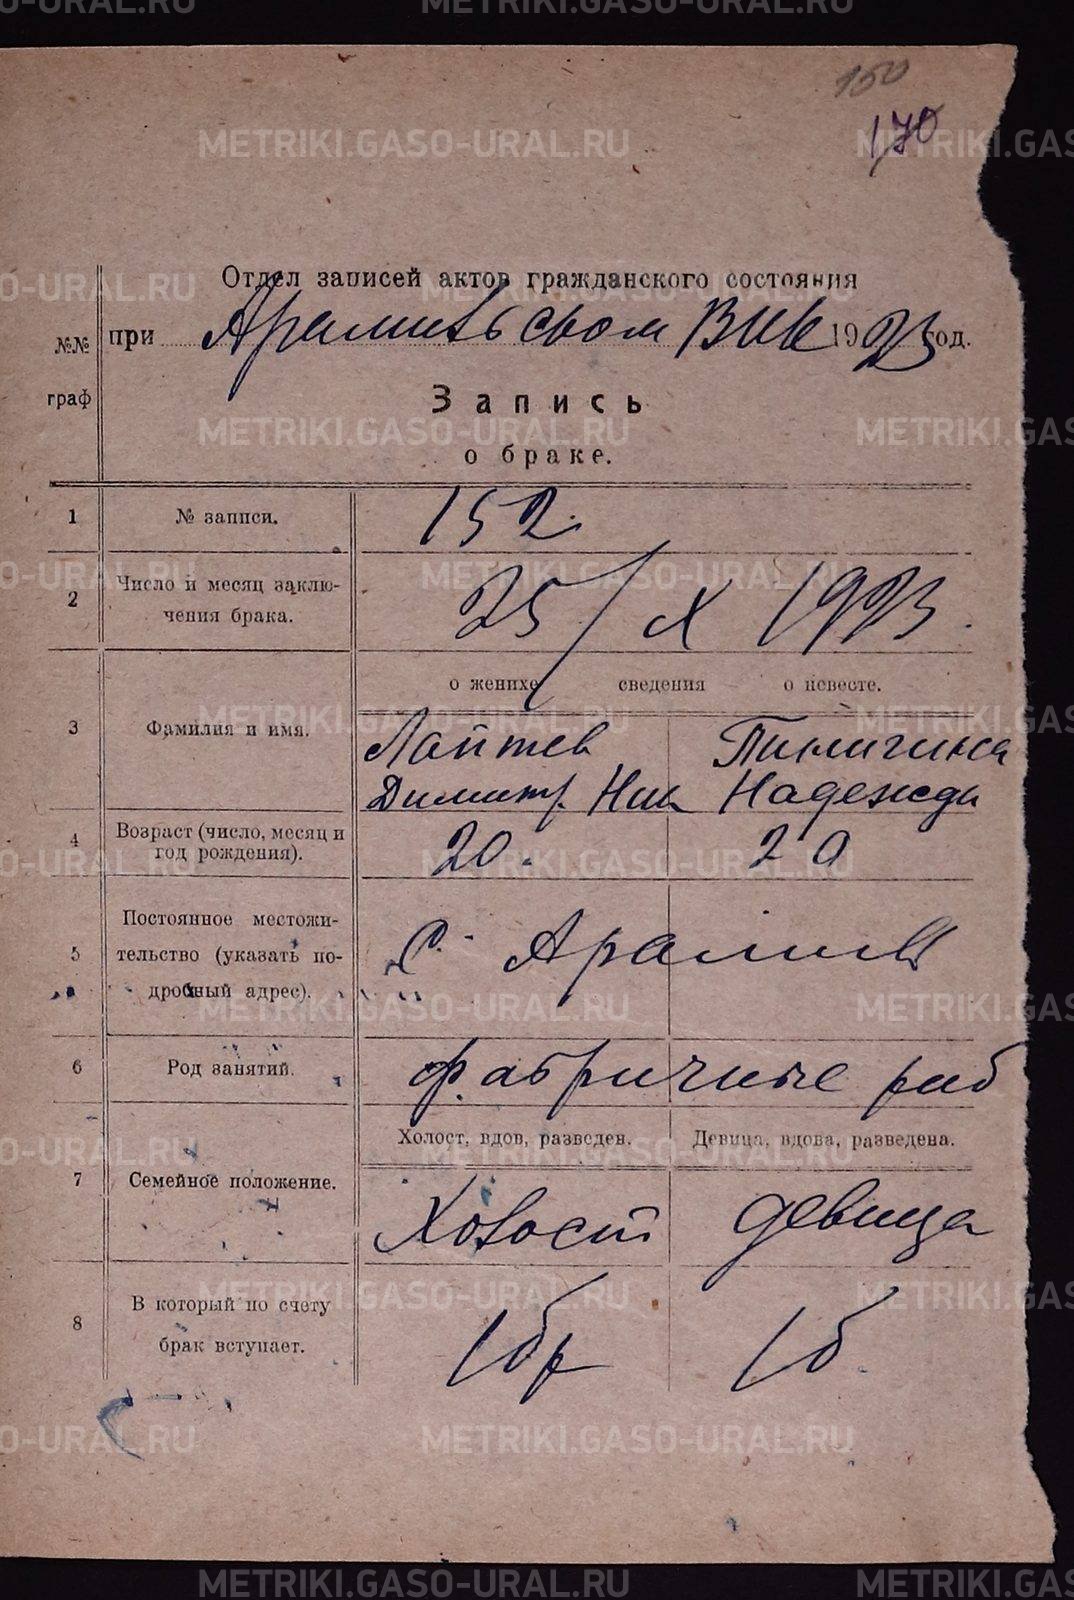 150
170
Отдел записей актов гражданского состояния
при Арамильском ВИК 1923 год.
№№ граф
Запись
о браке.
1 № записи. 152.
2 Число и месяц заключения брака. 25/X 1923.
о женихе сведения о невесте.
3 Фамилия и имя. Лаптев Пиличина
Димитр. Ник Надежда
4 Возраст (число, месяц и
год рождения). 20. 20
5 Постоянное местожи-
тельство (указать по-
дробный адрес). С. Арамиль
6 Род занятий. фабричные раб
Холост, вдов, разведен. Девица, вдова, разведена.
7 Семейное положение. Холост девица
8 В который по счету
брак вступает. 1 бр 1 б.
METRIKI.GASO-URAL.RU